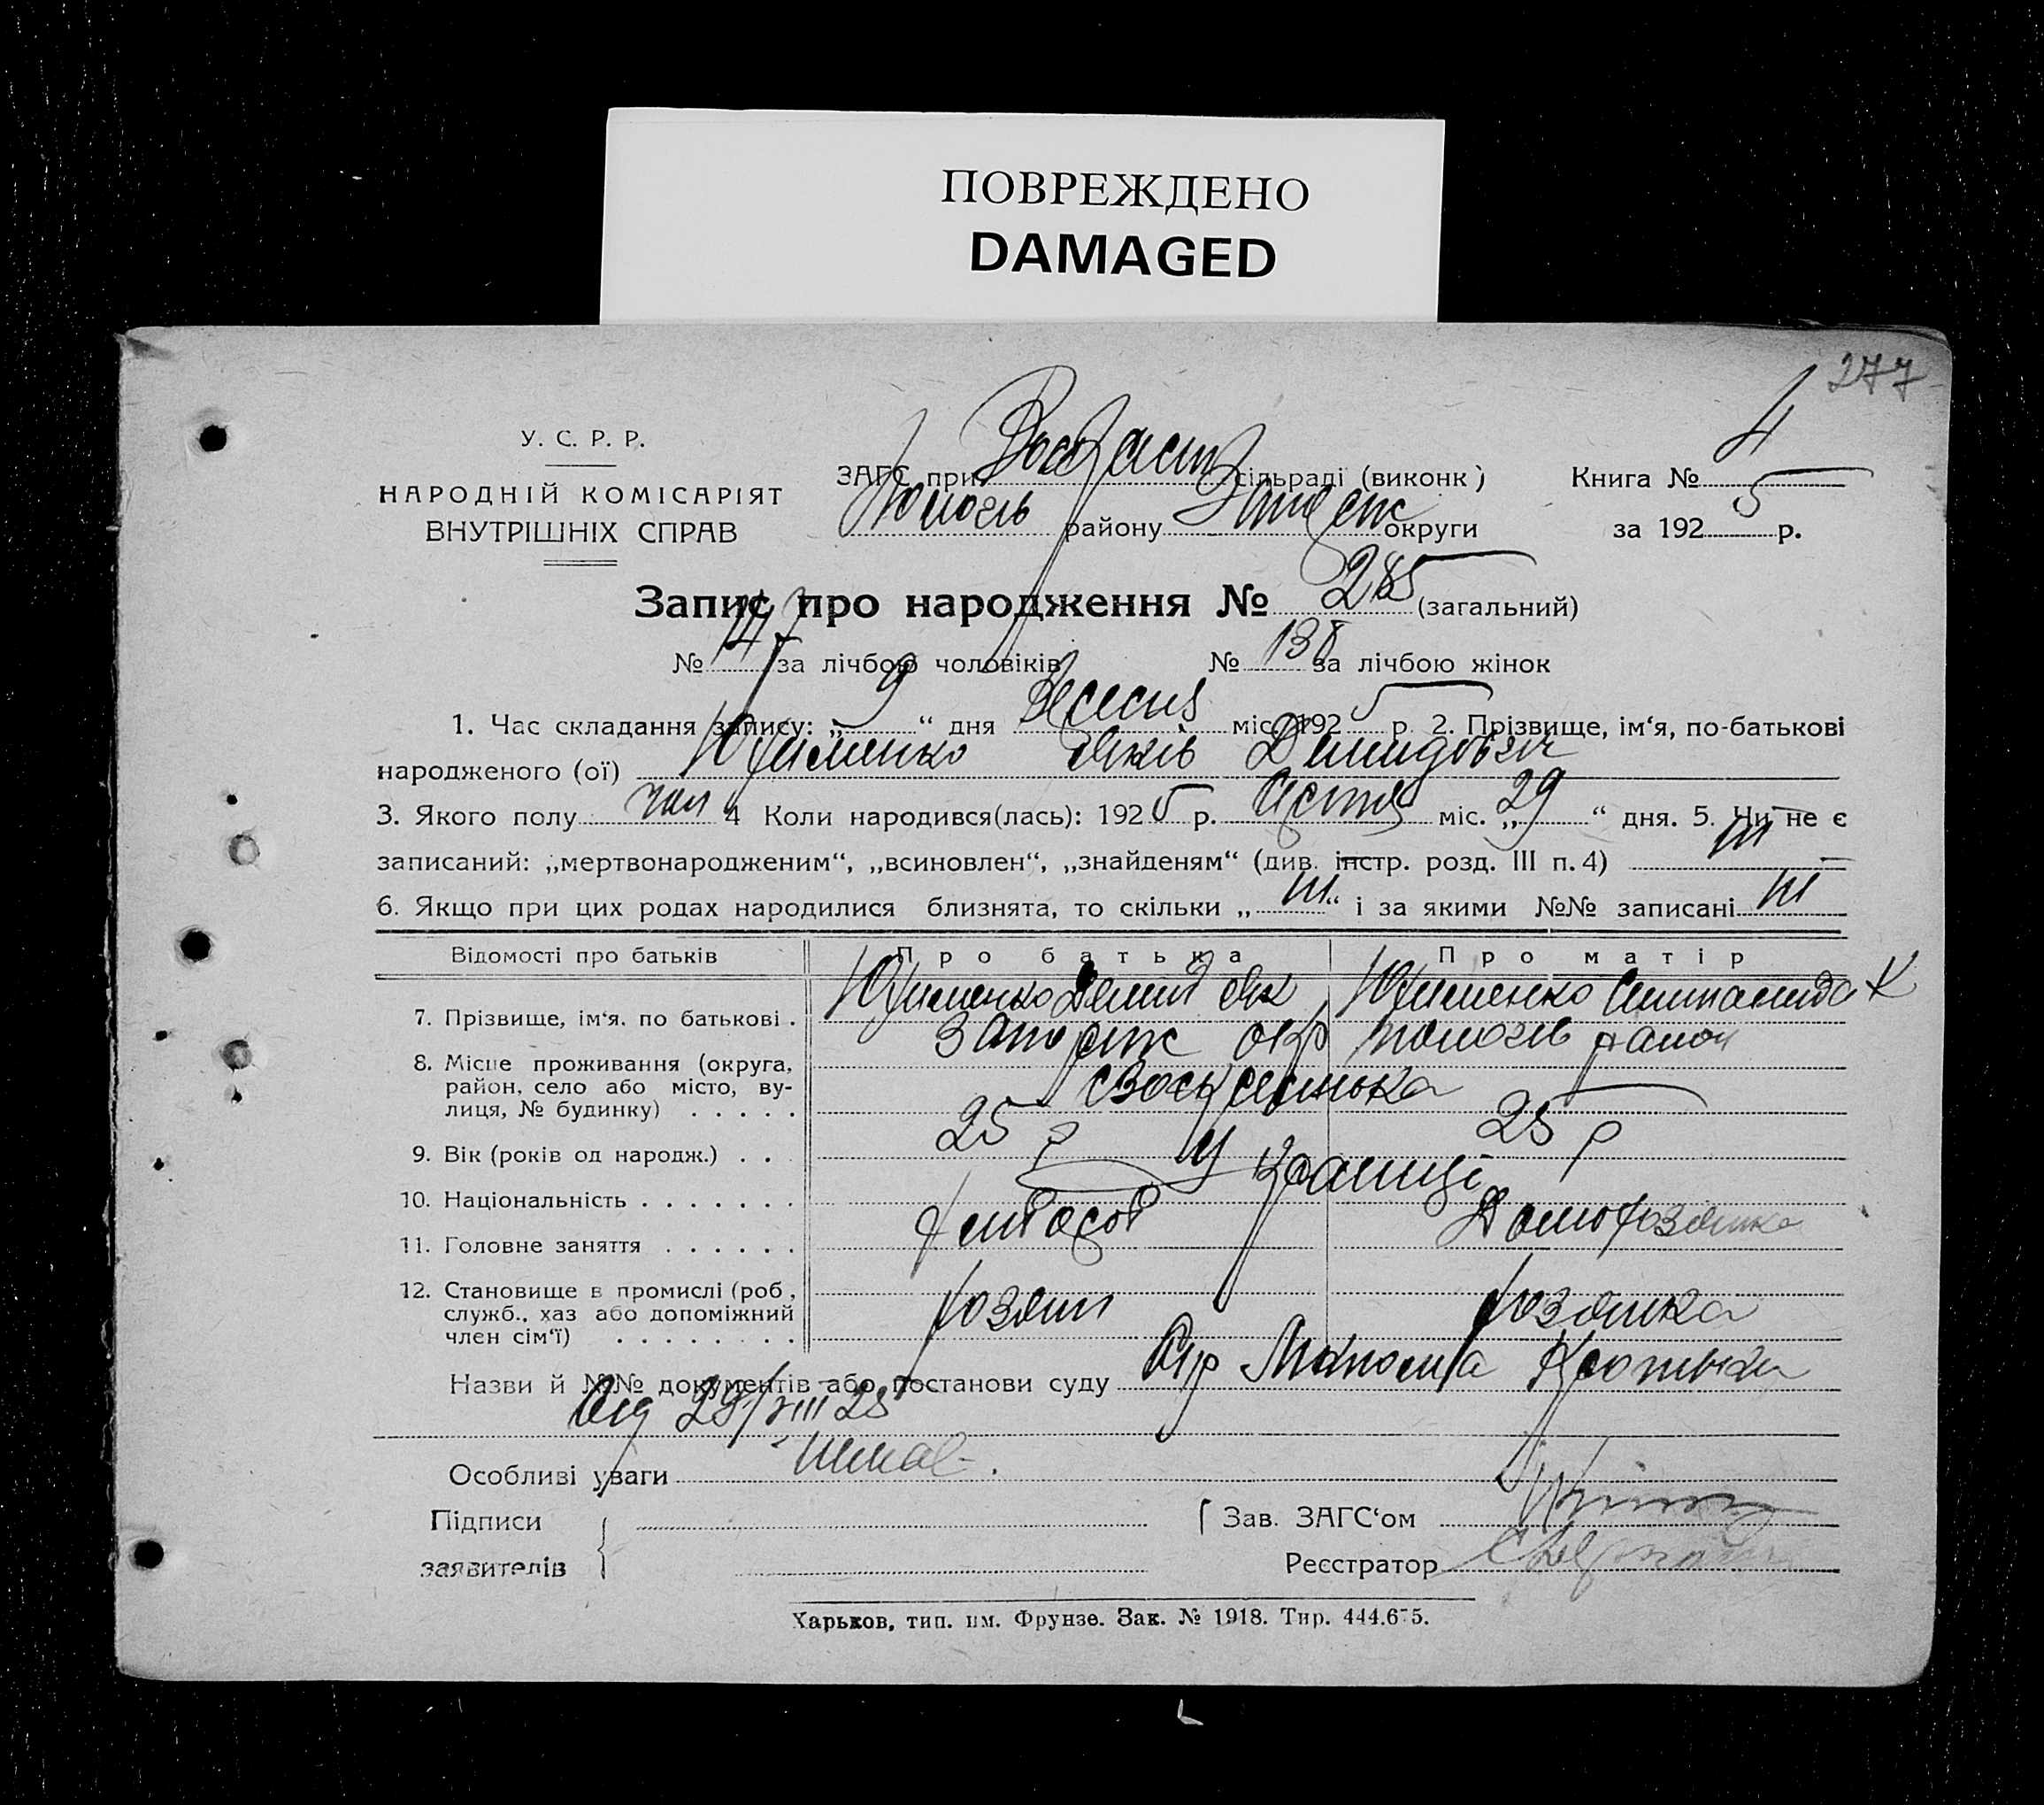 ПОВРЕЖДЕНО
DAMAGED
277
У. С. Р. Р.
НАРОДНІЙ КОМІСАРІЯТ
ВНУТРІШНІХ СПРАВ
ЗАГС при сільраді (виконк)
району округи
Книга № 4
за 1925 р.
Запис про народження № 285 (загальний)
№ 147 за лічбою чоловіків № 138 за лічбою жінок
1. Час складання запису: „ 9 “ дня Вересня міс. 1925 р 2. Прізвище, ім‘я, по-батькові
народженого (ої) Юхименко Яків Демидович
3. Якого полу чол 4 Коли народився(лась): 1925 р. Серпня міс. „ 29 “ дня. 5. Чи не є
записаний: „мертвонародженим“, „всиновлен“, „знайденям“ (див. інстр. розд. III п. 4) ні
6. Якщо при цих родах народилися близнята, то скільки „ ні “ і за якими №№ записані ні
Відомості про батьків Про батька Про матір
7. Прізвище, ім‘я. по батькові . Юхименко Демид Як Юхименко Степанида К
8. Місце проживання (округа, Запоріж окр пологів район
район, село або місто, ву-
лиця, № будинку) . . . . .
9. Вік (років од народж.) . . 25 р 25 р
10. Національність . . . . . . . Українці
11. Головне заняття . . . . . . хлібороб Домохозяйка
12. Становище в промислі (роб., хозяин хозяйка
служб., хаз або допоміжний
член сім‘ї) . . . . . . . .
Назви й №№ документів або постанови суду
Від 29/VIII 25
Особливі уваги немає .
Підписи
заявителів
Зав. ЗАГС‘ом
Реєстратор
Харьков, тип. им. Фрунзе. Зак. № 1918. Тир. 444.675.